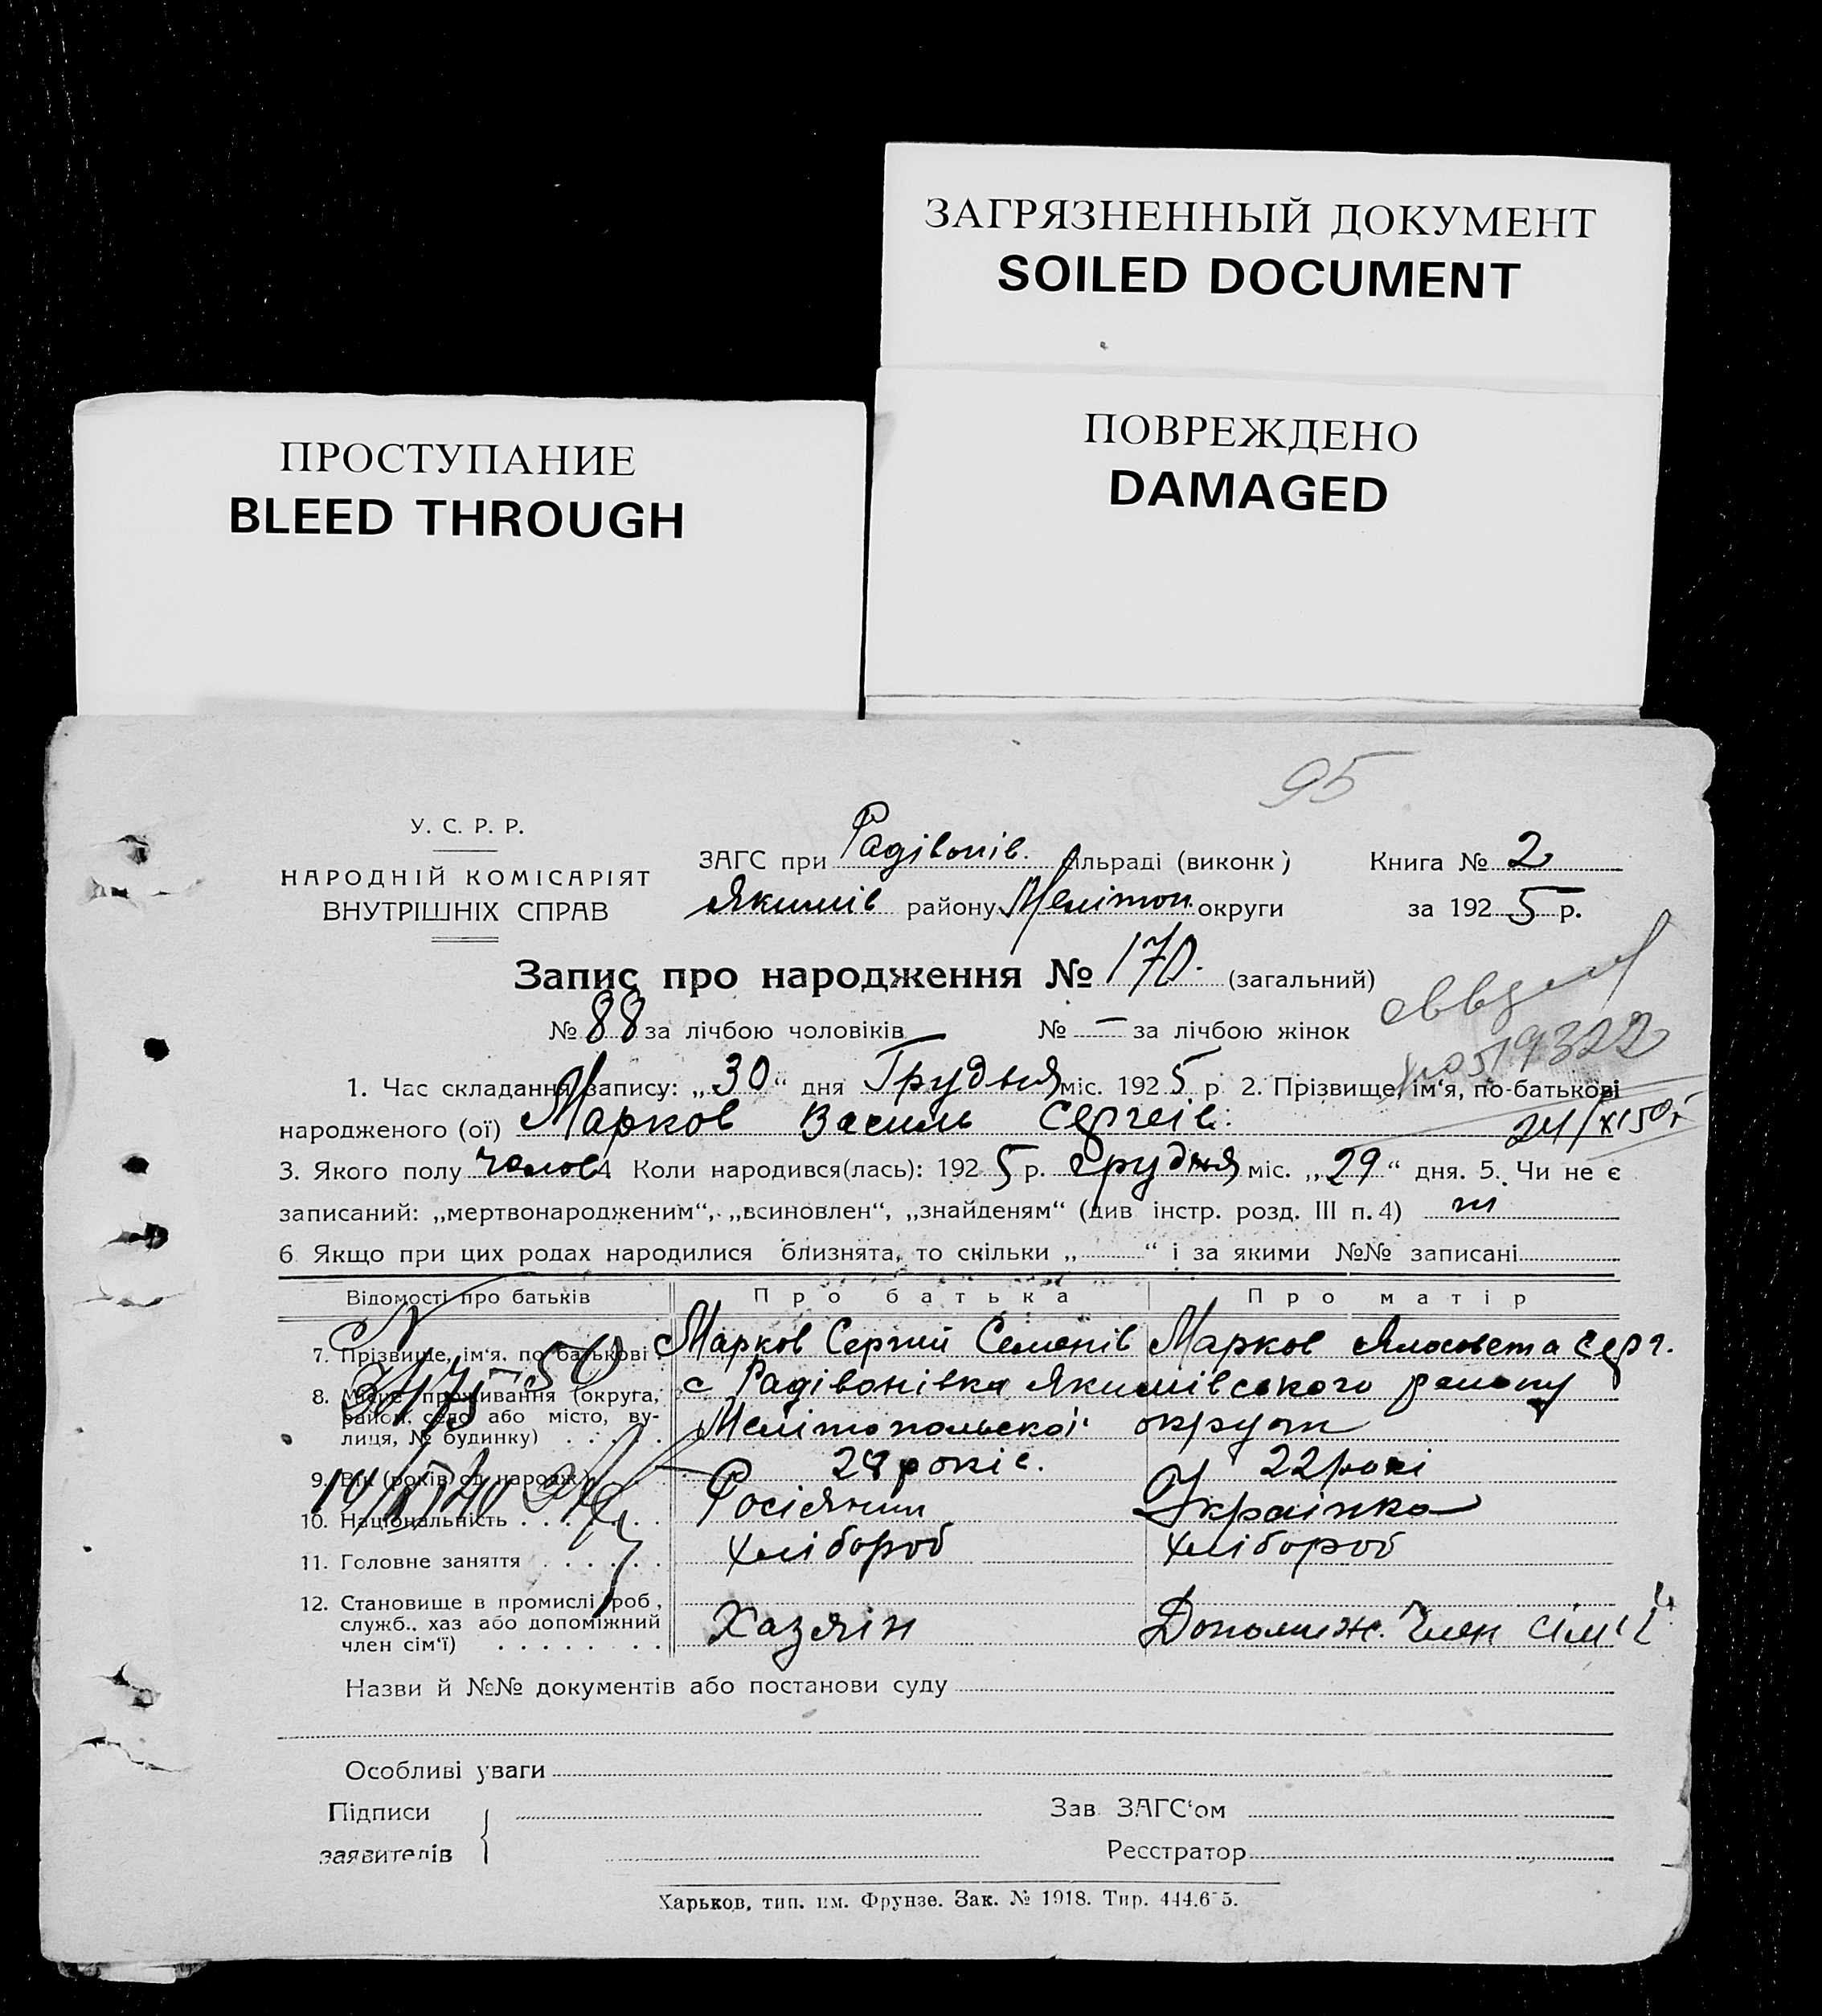 ЗАГРЯЗНЕННЫЙ ДОКУМЕНТ
SOILED DOCUMENT
ПОВРЕЖДЕНО
DAMAGED
ПРОСТУПАНИЕ
BLEED THROUGH
95
У. С. Р. Р.
НАРОДНІЙ КОМІСАРІЯТ
ВНУТРІШНІХ СПРАВ
ЗАГС при Радівонів. сільраді (виконк) Книга № 2
Якимів району Мелітоп. округи за 1925 р.
Запис про народження № 170. (загальний)
№ 88 за лічбою чоловіків № — за лічбою жінок
19322
1. Час складання запису: „30“ дня Грудня міс. 1925 р. 2. Прізвище, ім‘я, по-батькові
народженого (ої) Марков Василь Сергеів.
3. Якого полу чолов 4. Коли народився(лась): 1925 р. Грудня міс. „29“ дня. 5. Чи не є
записаний: „мертвонародженим“, „всиновлен“, „знайденям“ (див інстр. розд. III п. 4) ні
6 Якщо при цих родах народилися близнята, то скільки „ “ і за якими №№ записані
Відомості про батьків Про батька Про матір
7. Прізвище, ім‘я, по батькові Марков Сергий Семенів Марков Ялосовета Серг.
8. Місце проживання (округа, район, село або місто, вулиця, № будинку) с Радівонівка Якимівського району
Мелітопольскоі округи
9. Вік (років од народж.) 28 років. 22 рокі
10. Національність Росіянин Украінка
11. Головне заняття Хлібороб Хлібороб
12. Становище в промислі (роб, служб., хаз або допоміжний член сім‘ї) Хазяін Допоміж. член сім'ї
Назви й №№ документів або постанови суду
Особливі уваги
Підписи
заявителів
Зав ЗАГС‘ом
Реєстратор
Харьков, тип. им. Фрунзе. Зак. № 1918. Тир.